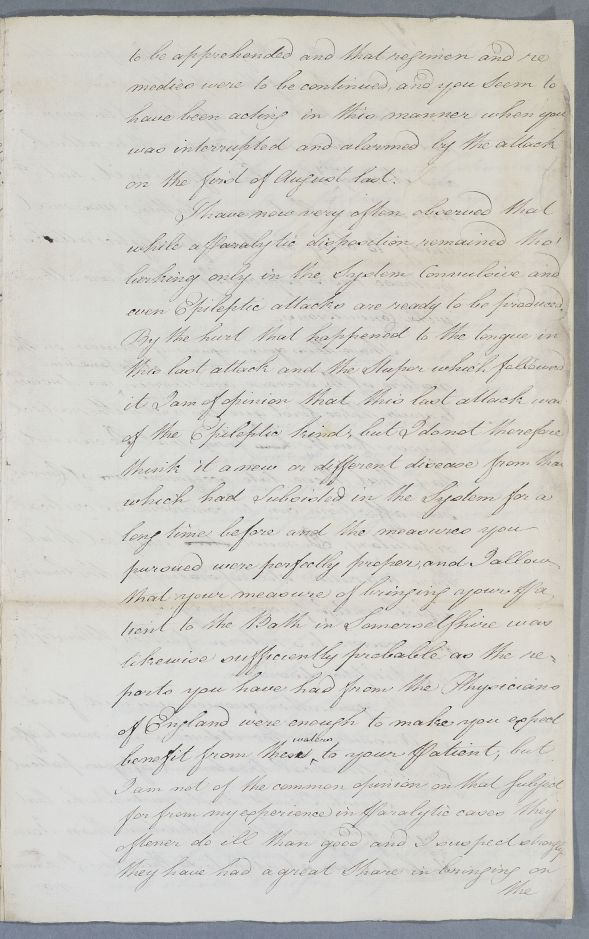 to be apprehended and that regimen and re
medies were to be continued, and you seem to
have been acting in this manner when you
was interrupted and alarmed by the attack
on the first of August last.
I have now very often observed that
while a Paralytic disposition remained tho'
lurking only in the System Convulsive and
even Epileptic attacks are ready to be produced.
By the hurt that happened to the tongue in
this last attack and the Stupor which followed
it I am of opinion that this last attack was
of the Epileptic kind, but I do not therefore
think it a new or different disease from that
which had Subsisted in the System for a
long time before and the measures you
pursued were perfectly proper, and I allow
that your measure of bringing your Pa
tient to the Bath in Somersetshire was
likewise sufficiently probable as the re=
ports you have had from the Physicians
of England were enough to make you expect
waters
benefit from these to your Patient; but
I am not of the common opinion on that Subject
for from my experience in Paralytic cases they
oftener do ill than good and I suspect strongly
they have had a great Share in bringing on
the